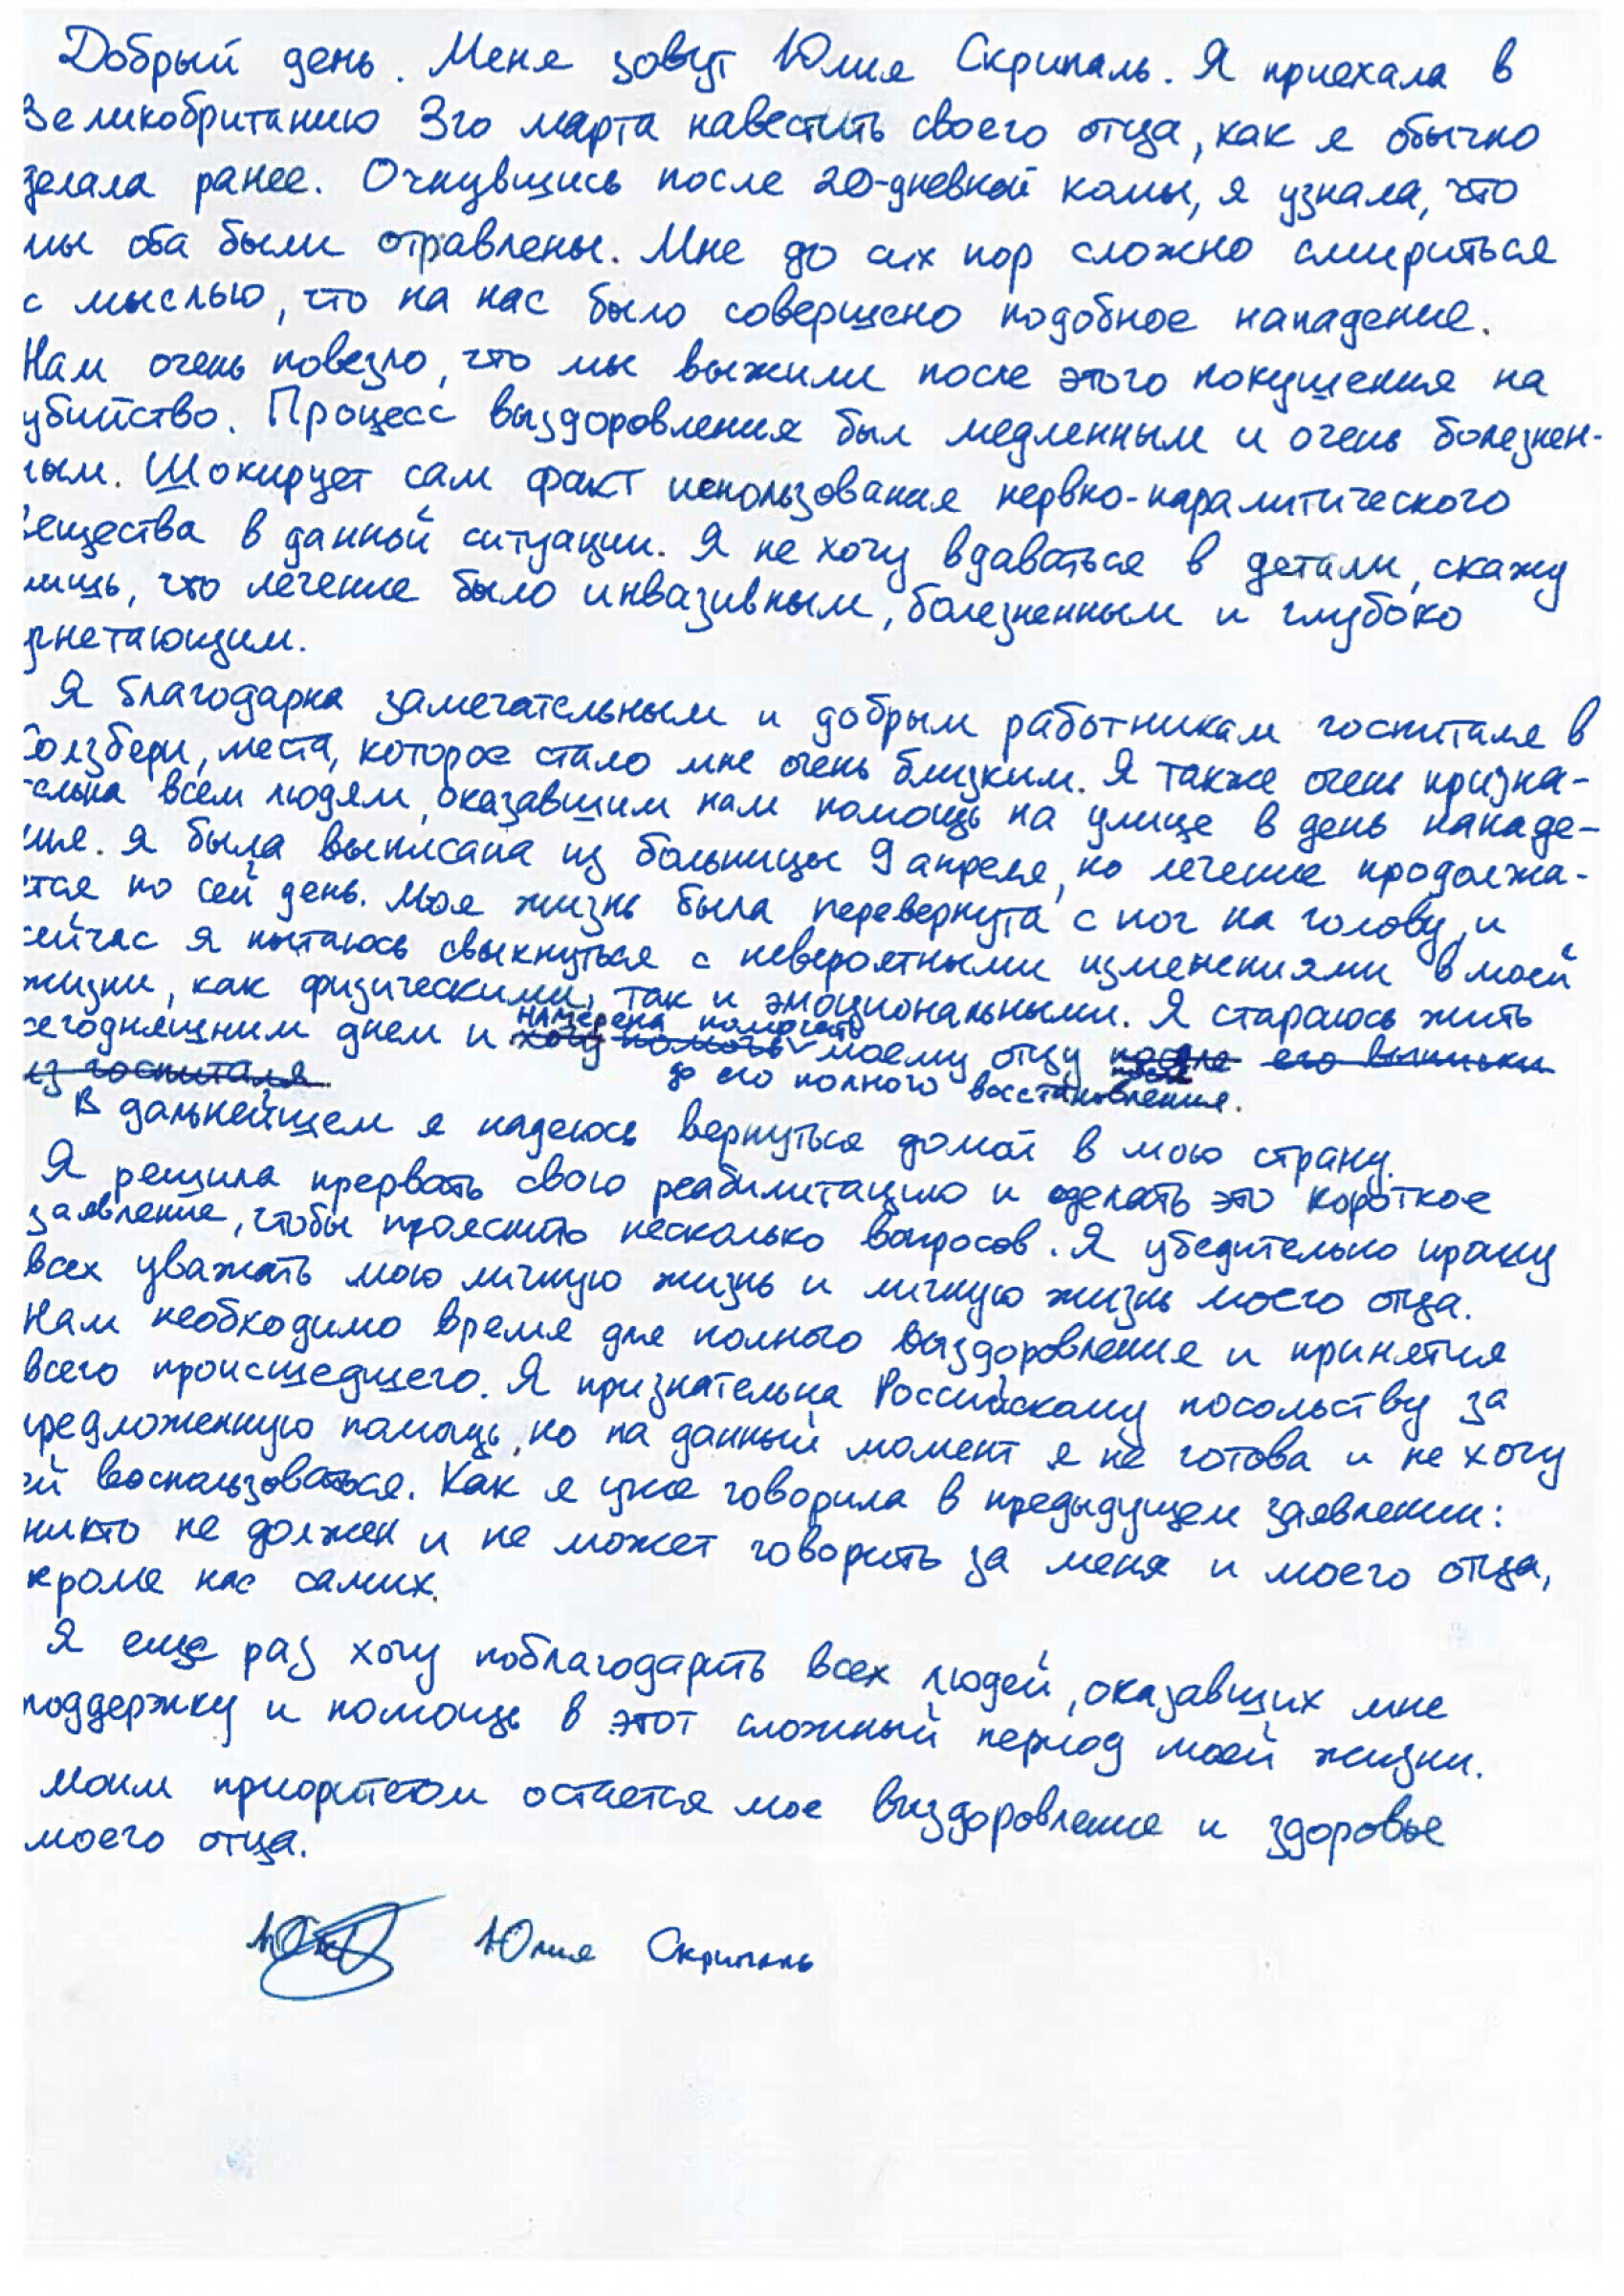 Добрый день. Меня зовут Юлия Скрипаль. Я приехала в
Великобританию 3го марта навестить своего отца, как я обычно
делала ранее. Очнувшись после 20-дневной комы, я узнала, что
мы оба были отравлены. Мне до сих пор сложно смириться
с мыслью, что на нас было совершено подобное нападение.
Нам очень повезло, что мы выжили после этого покушения на
убийство. Процесс выздоровления был медленным и очень болезнен-
ным. Шокирует сам факт использования нервно-паралитического
вещества в данной ситуации. Я не хочу вдаваться в детали, скажу
лишь, что лечение было инвазивным, болезненным и глубоко
угнетающим.
Я благодарна замечательным и добрым работникам госпиталя в
Солзбери, места, которое стало мне очень близким. Я также очень призна-
тельна всем людям, оказавшим нам помощь на улице в день нападе-
ния. Я была выписана из больницы 9 апреля, но лечение продолжа-
ется по сей день. Моя жизнь была перевернута с ног на голову, и
сейчас я пытаюсь свыкнуться с невероятными изменениями в моей
жизни, как физическими, так и эмоциональными. Я стараюсь жить
намерена помогать
сегодняшним днем и хочу помочь моему отцу после его выписки
из госпиталя. до его полного восстановления.
В дальнейшем я надеюсь вернуться домой в мою страну.
Я решила прервать свою реабилитацию и сделать это короткое
заявление, чтобы прояснить несколько вопросов. Я убедительно прошу
всех уважать мою личную жизнь и личную жизнь моего отца.
Нам необходимо время для полного выздоровления и принятия
всего происшедшего. Я признательна Российскому посольству за
предложенную помощь, но на данный момент я не готова и не хочу
ей воспользоваться. Как я уже говорила в предыдущем заявлении:
никто не должен и не может говорить за меня и моего отца,
кроме нас самих.
Я еще раз хочу поблагодарить всех людей, оказавших мне
поддержку и помощь в этот сложный период моей жизни.
Моим приоритетом остается мое выздоровление и здоровье
моего отца.
Юлия Скрипаль